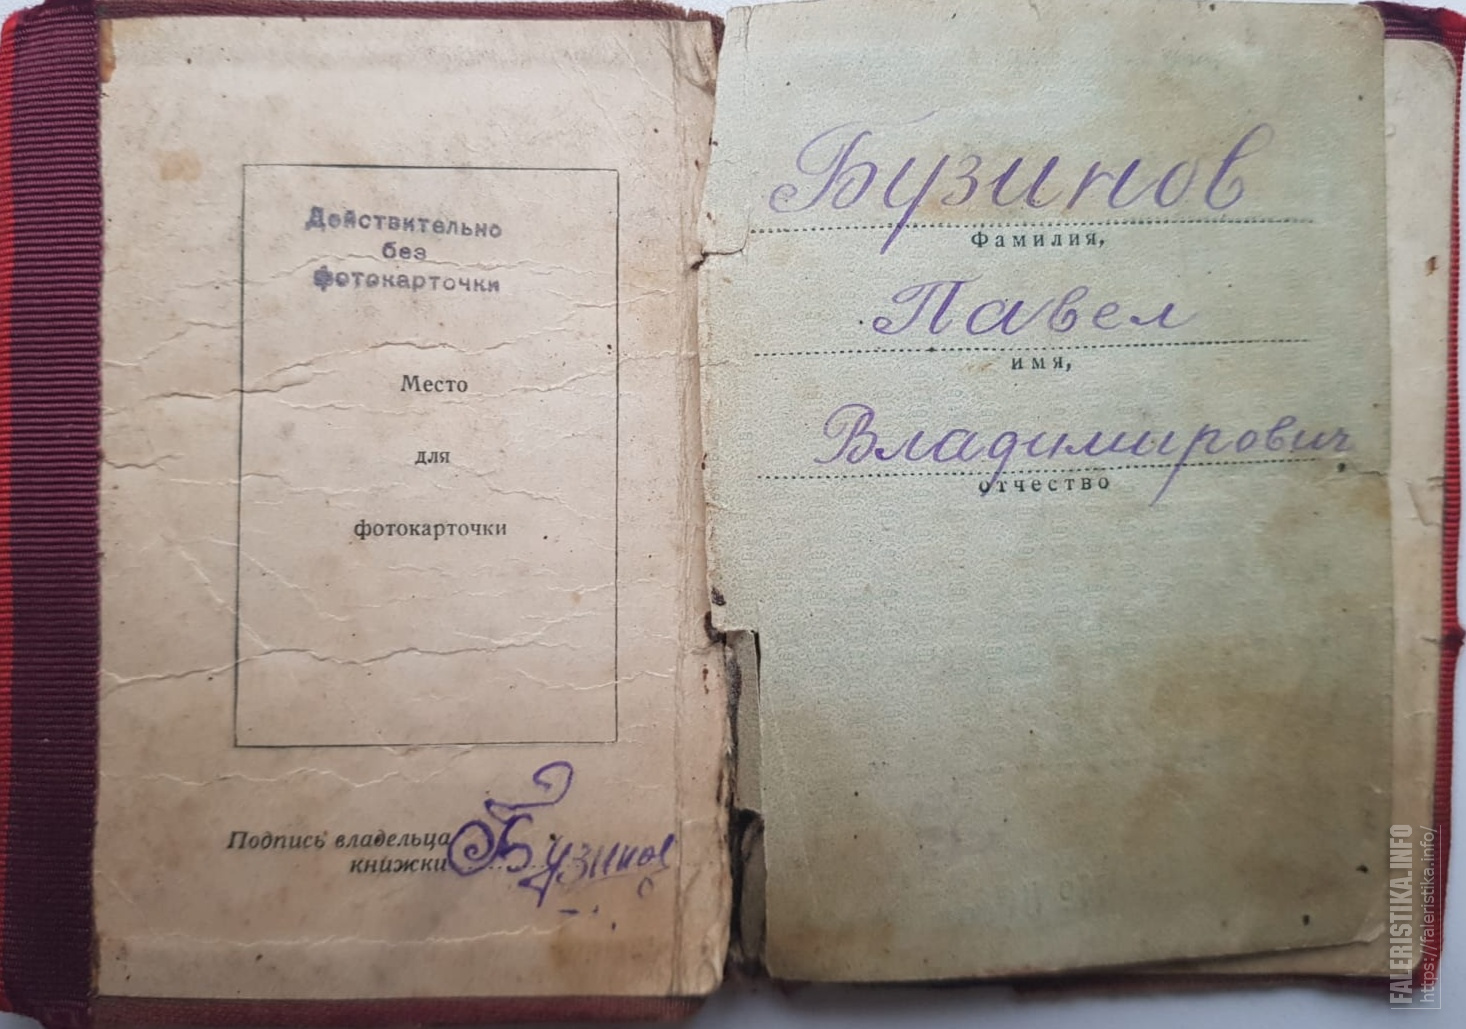 Действительно
без
фотокарточки
Место
для
фотокарточки
Подпись владельца
книжки
Бузинов
Бузинов
Фамилия,
Павел
имя,
Владимирович
отчество
FALERISTIKA.INFO
https://faleristika.info/